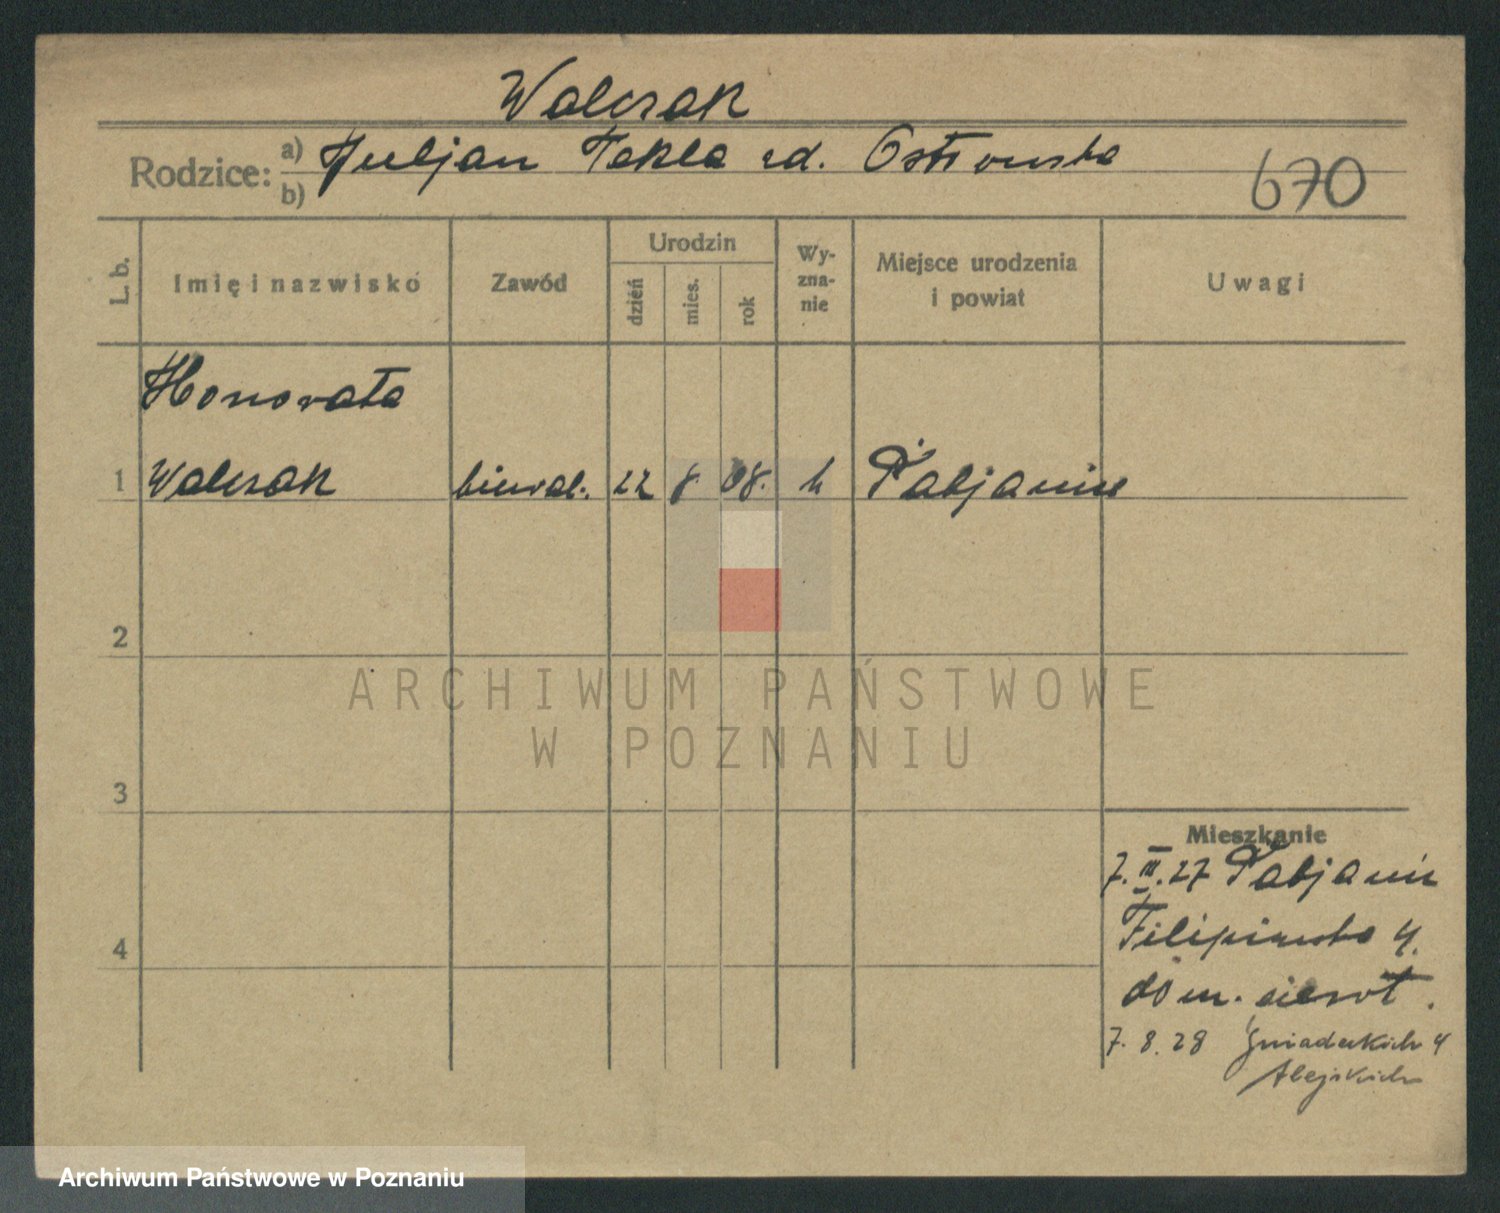 Walczak
Rodzice: a) Juljan Tekla zd. Ostrowska
b)
670
L. b. Imię i nazwisko Zawód Urodzin dzień mies. rok Wy-zna-nie Miejsce urodzenia i powiat Uwagi
Honorata
1 Walczak 22 8. 08. k Pabjanice
2
ARCHIWUM PAŃSTWOWE
W POZNANIU
3
Mieszkanie
7. III. 27 Pabjanice
4
Filipińska 4.
dom. sierot.
7. 8. 28 Śniadeckich 4
Archiwum Państwowe w Poznaniu